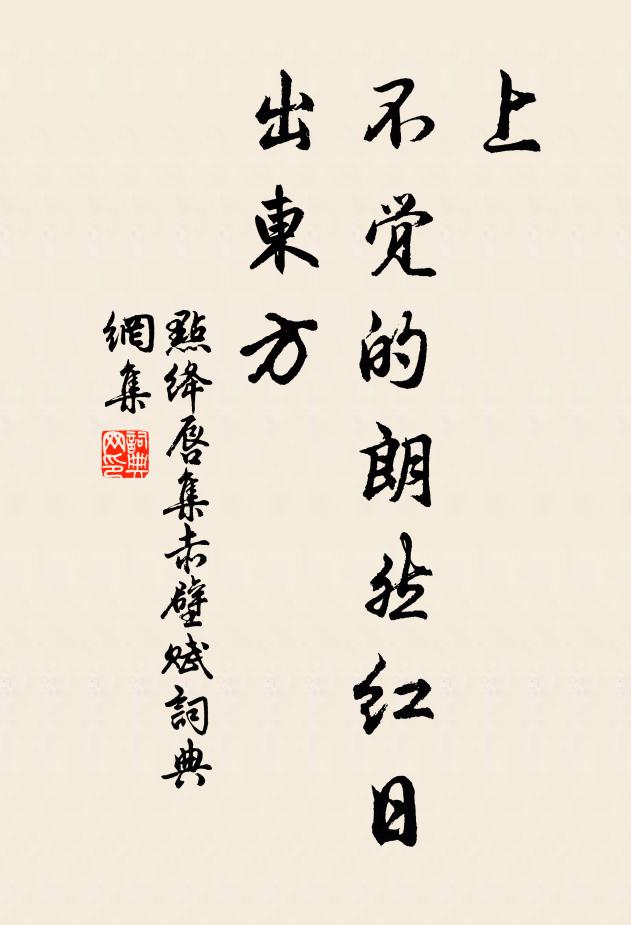 上
不觉的朗然红日
出東方
點绛唇集赤壁赋詞典
網集
詞典网印